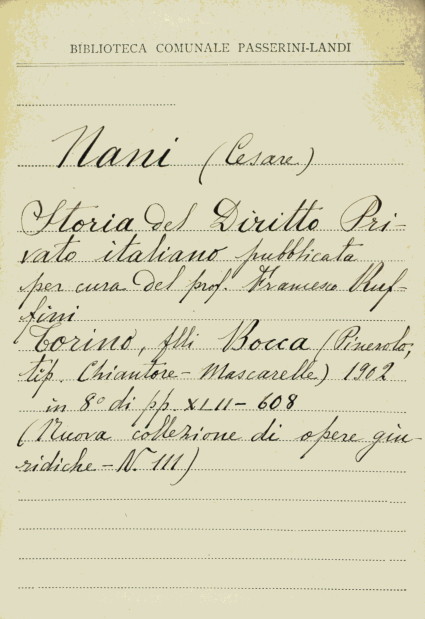 BIBLIOTECA COMUNALE PASSERINI-LANDI
Nani (Cesare)
Storia del Diritto Pri-
vato italiano pubblicata
per cura del prof. Francesco Ruf-
fini
Torino, flli Bocca (Pinerolo,
tip. Chiantore-Mascarelle) 1902
in 8° di pp. XLII-608
(Nuova collezione di opere giu-
ridiche-N. 111)